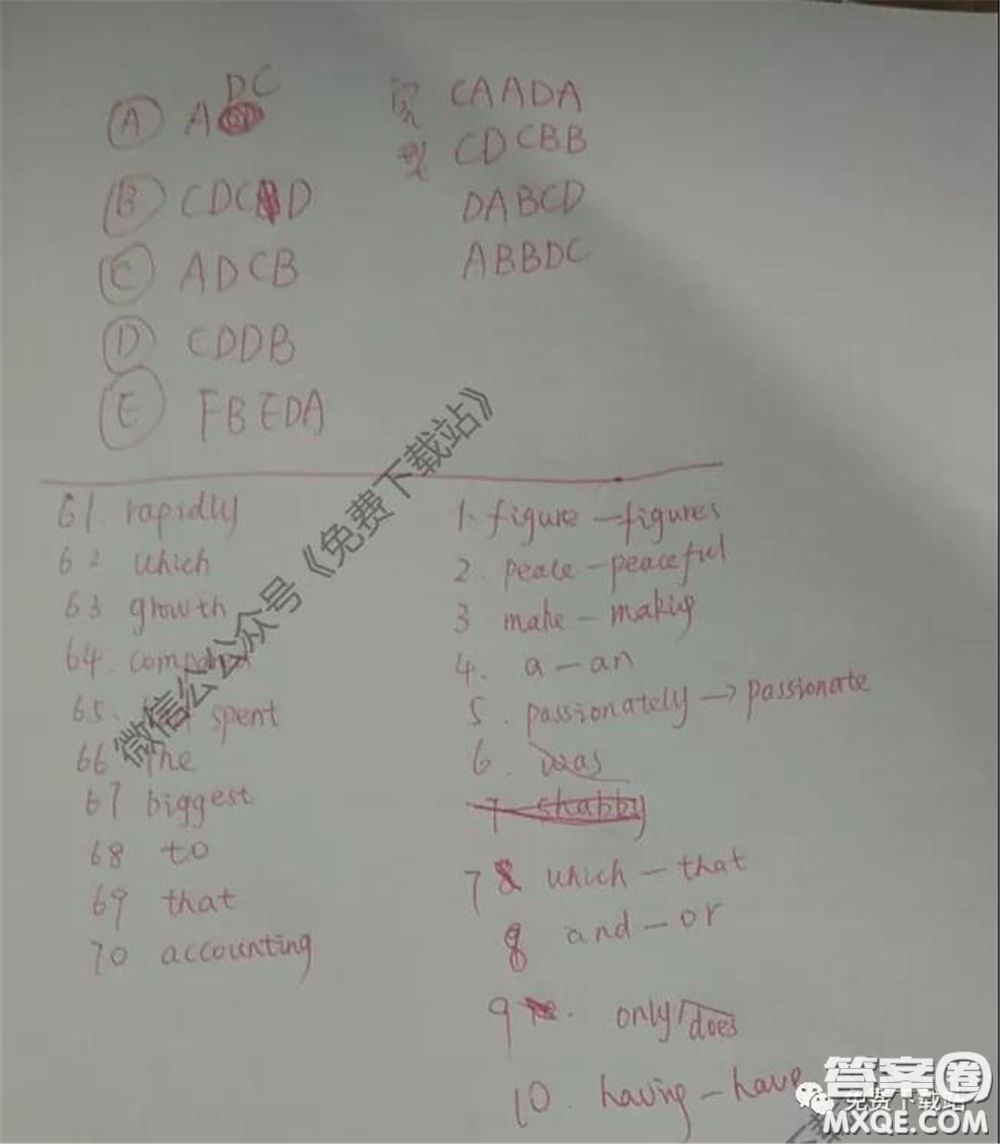 A A DC
B CDCD
C ADCB
D CDDB
E FBEDA
完 CAADA
型 CDCBB
DABCD
ABBDC
61 rapidly
62 which
63 growth
64.
65. spent
66 the
67 biggest
68 to
69 that
70 accounting
1. figure - figures
2. peace - peaceful
3 make - making
4. a - an
5. passionately → passionate
6. was
7 shabby
7 which - that
8 and - or
9. only does
10. having - have
微信公众号《免费下载站》
答案圈
免费下载站
MXQE.COM